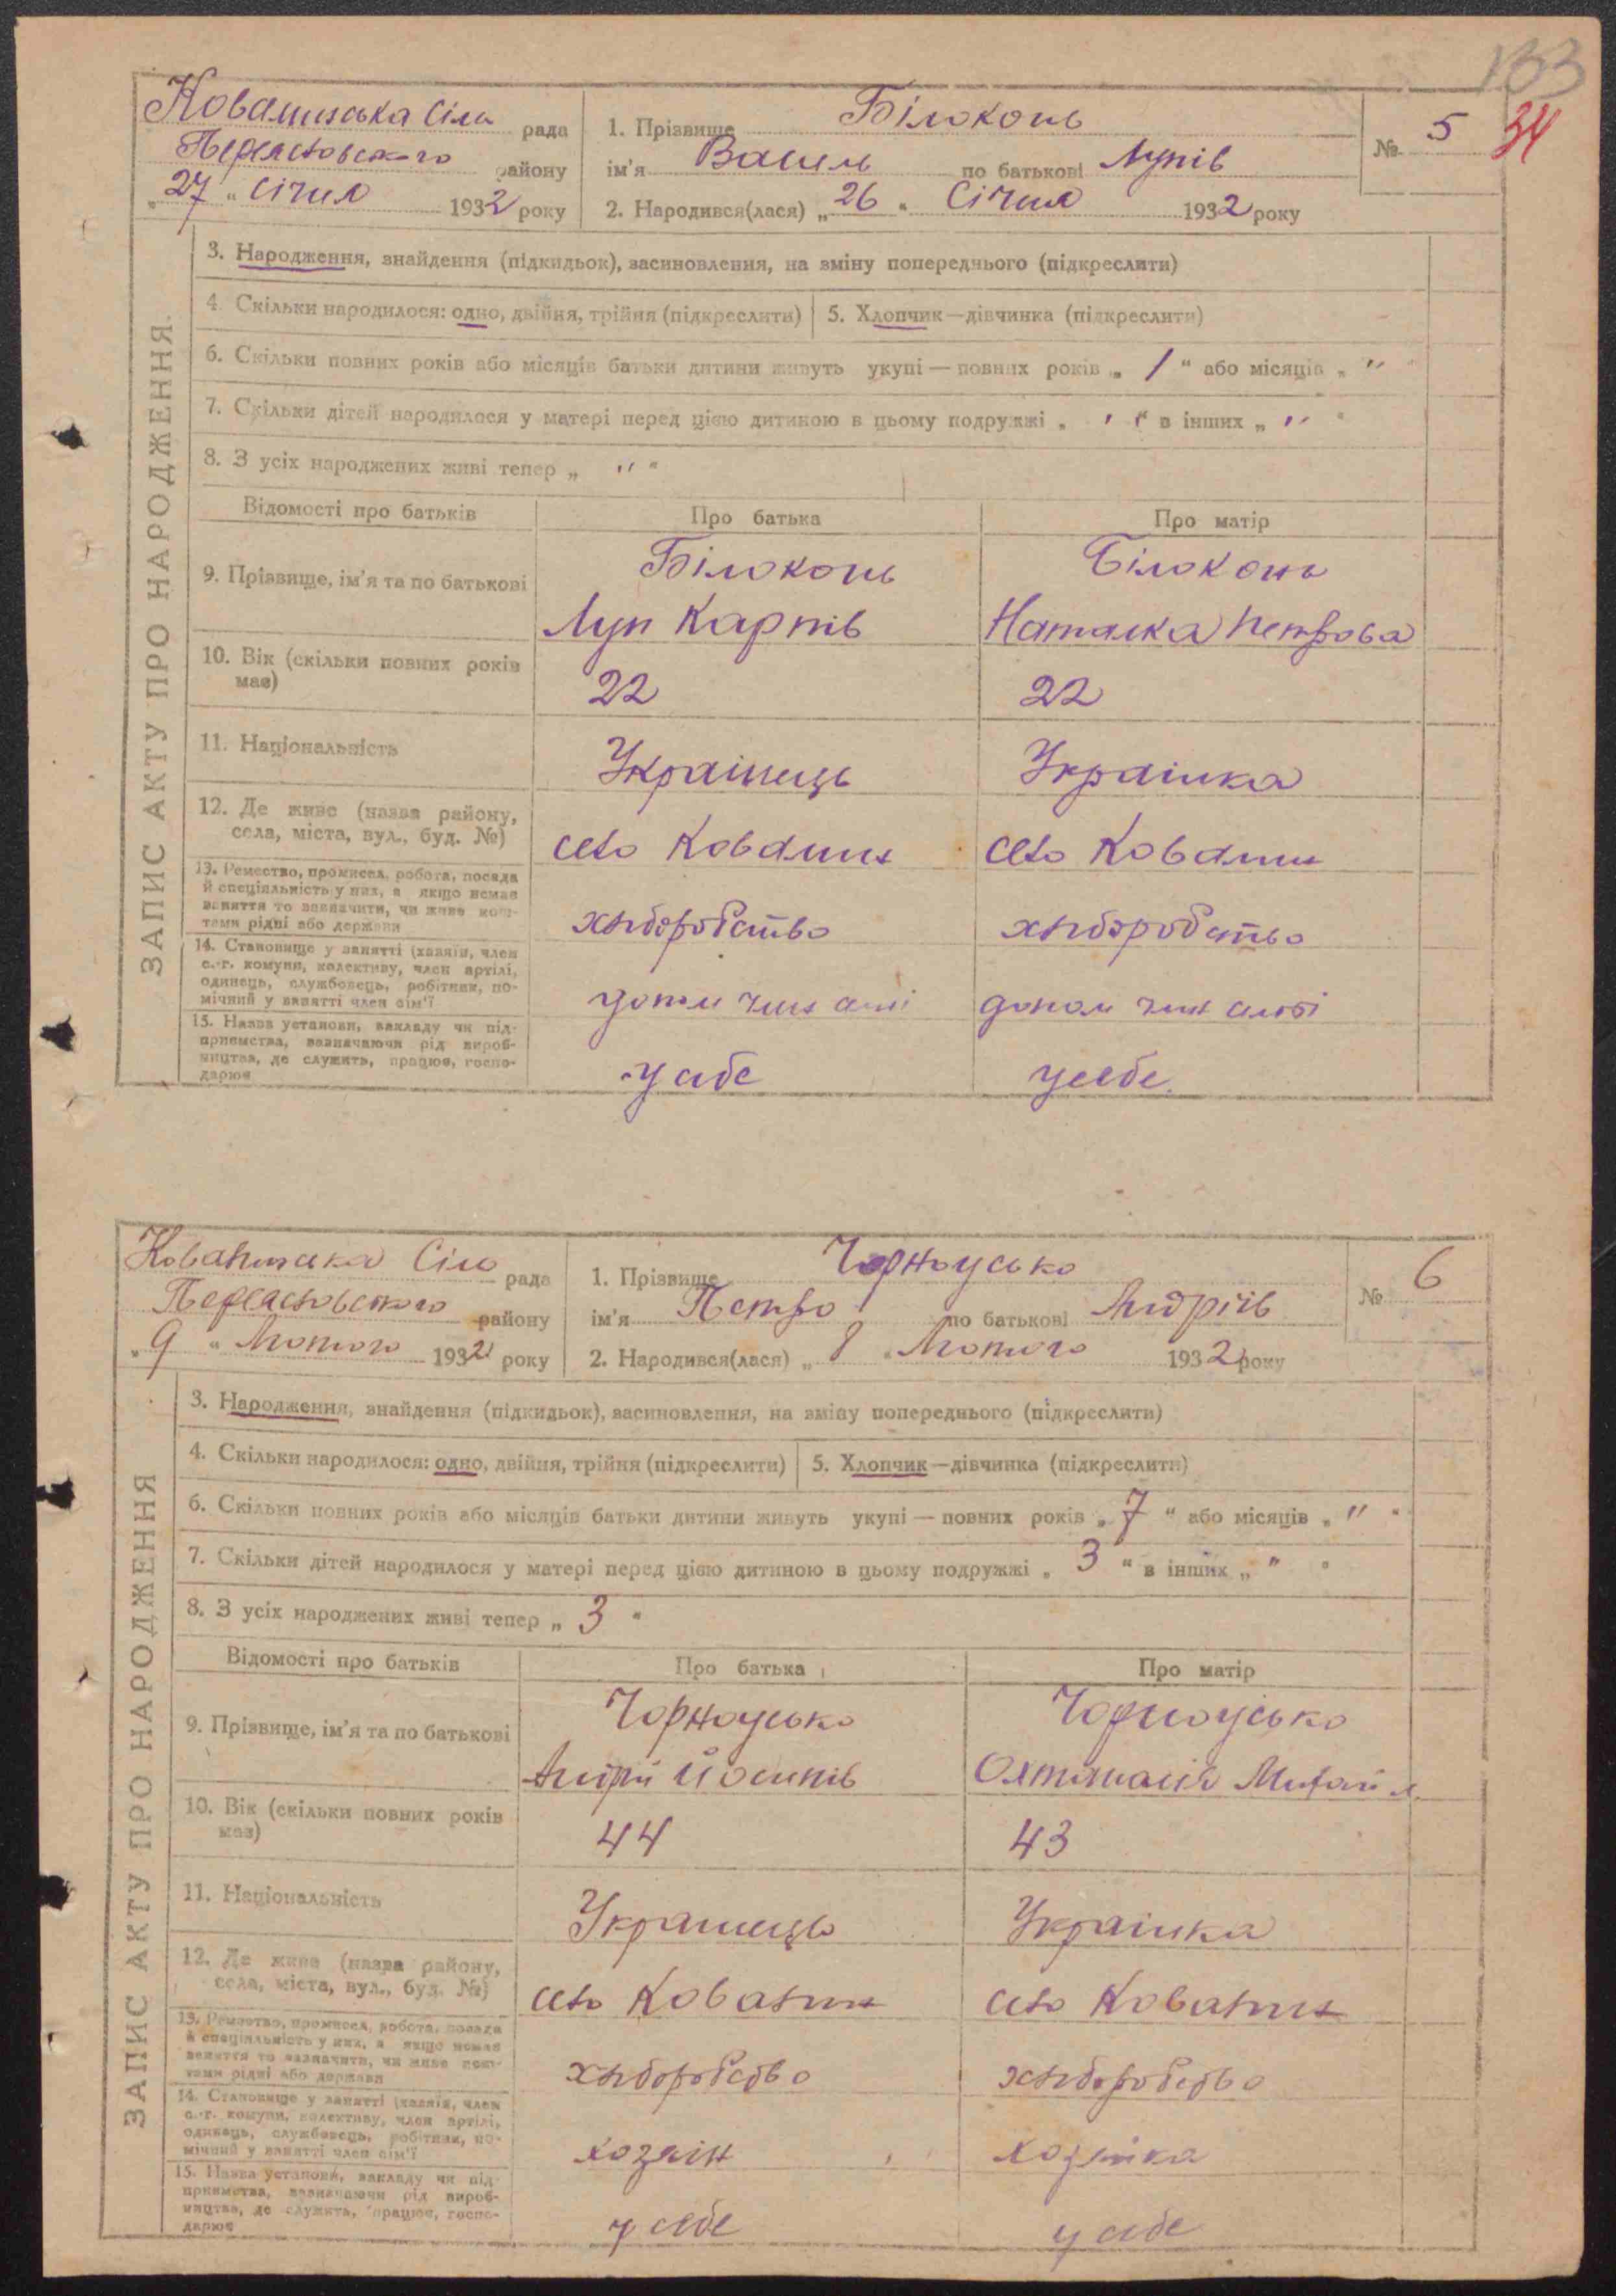 133
34
Ковалинська Сіль рада
Переяславського району
„ 27 “ Січня 1932 року
1. Прізвище Білоконь
ім'я Василь по батькові Лупів
2. Народився(лася) „ 26 “ Січня 1932 року
№ 5
ЗАПИС АКТУ ПРО НАРОДЖЕННЯ.
3. Народження, знайдення (підкидьок), засиновлення, на зміну попереднього (підкреслити)
4. Скільки народилося: одно, двійня, трійня (підкреслити)
5. Хлопчик—дівчинка (підкреслити)
6. Скільки повних років або місяців батьки дитини живуть укупі — повних років „ 1 “ або місяців „ " “
7. Скільки дітей народилося у матері перед цією дитиною в цьому подружжі „ " “ в інших „ " “
8. З усіх народжених живі тепер „ " “
Відомості про батьків Про батька Про матір
9. Прізвище, ім'я та по батькові
Білоконь Білоконь
Луп Карпів Наталка Петрова
10. Вік (скільки повних років має)
22 22
11. Національність
Українець Українка
12. Де живе (назва району, села, міста, вул., буд. №)
село Ковалин село Ковалин
13. Ремество, промисел, робота, посада й спеціяльність у них, а якщо немає заняття то зазначити, чи живе коштами рідні або держави
хліборобство хліборобство
14. Становище у занятті (хазяїн, член с.-г. комуни, колективу, член артілі, одинець, службовець, робітник, помічний у занятті член сім'ї
допом член сімї допом член сімї
15. Назва установи, закладу чи підприємства, зазначаючи рід виробництва, де служить, працює, господарює
у себе у себе
Ковалинська Сіль рада
Переяславського району
„ 9 “ Лютого 1932 року
1. Прізвище Чорноусько
ім'я Петро по батькові Андріїв
2. Народився(лася) „ 8 “ Лютого 1932 року
№ 6
ЗАПИС АКТУ ПРО НАРОДЖЕННЯ
3. Народження, знайдення (підкидьок), засиновлення, на зміну попереднього (підкреслити)
4. Скільки народилося: одно, двійня, трійня (підкреслити)
5. Хлопчик—дівчинка (підкреслити)
6. Скільки повних років або місяців батьки дитини живуть укупі — повних років „ 7 “ або місяців „ " “
7. Скільки дітей народилося у матері перед цією дитиною в цьому подружжі „ 3 “ в інших „ " “
8. З усіх народжених живі тепер „ 3 “
Відомості про батьків Про батька Про матір
9. Прізвище, ім'я та по батькові
Чорноусько Чорноусько
Андрій Йосипів Михайл.
10. Вік (скільки повних років має)
44 43
11. Національність
Українець Українка
12. Де живе (назва району, села, міста, вул., буд. №)
село Ковалин село Ковалин
13. Ремество, промисел, робота, посада й спеціяльність у них, а якщо немає заняття то зазначити, чи живе коштами рідні або держави
хліборобство хліборобство
14. Становище у занятті (хазяїн, член с.-г. комуни, колективу, член артілі, одинець, службовець, робітник, помічний у занятті член сім'ї
хозяїн хозяйка
15. Назва установи, закладу чи підприємства, зазначаючи рід виробництва, де служить, працює, господарює
у себе у себе